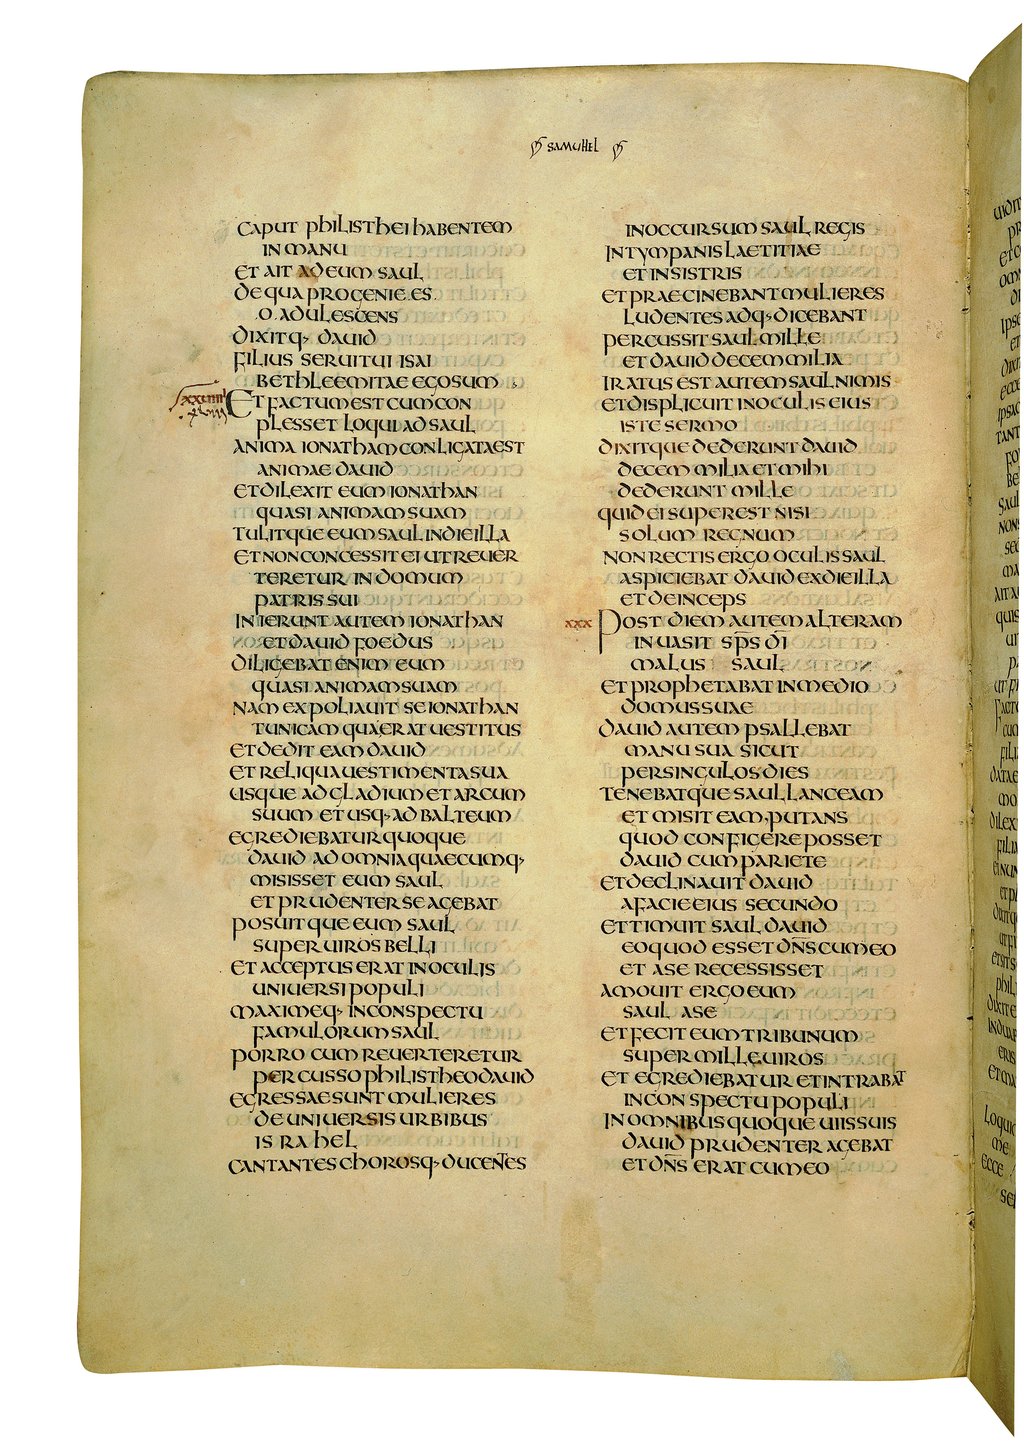 SAMUHEL
CAPUT PHILISTHEI HABENTEM
IN MANU
ET AIT AD EUM SAUL
DE QUA PROGENIE ES
O ADULESCENS
DIXITQ· DAUID
FILIUS SERUI TUI ISAI
BETHLEEMITAE EGO SUM
XXVIIII
ET FACTUM EST CUM CON
PLESSET LOQUI AD SAUL
ANIMA IONATHAM CONLIGATA EST
ANIMAE DAUID
ET DILEXIT EUM IONATHAN
QUASI ANIMAM SUAM
TULITQUE EUM SAUL IN DIE ILLA
ET NON CONCESSIT EI UT REUER
TERETUR IN DOMUM
PATRIS SUI
INIERUNT AUTEM IONATHAN
ET DAUID FOEDUS
DILIGEBAT ENIM EUM
QUASI ANIMAM SUAM
NAM EXPOLIAUIT SE IONATHAN
TUNICAM QUA ERAT UESTITUS
ET DEDIT EAM DAUID
ET RELIQUA UESTIMENTA SUA
USQUE AD GLADIUM ET ARCUM
SUUM ET USQ· AD BALTEUM
EGREDIEBATUR QUOQUE
DAUID AD OMNIA QUAECUMQ·
MISISSET EUM SAUL
ET PRUDENTER SE AGEBAT
POSUITQUE EUM SAUL
SUPER UIROS BELLI
ET ACCEPTUS ERAT IN OCULIS
UNIUERSI POPULI
MAXIMEQ· IN CONSPECTU
FAMULORUM SAUL
PORRO CUM REUERTERETUR
PERCUSSO PHILISTHEO DAUID
EGRESSAE SUNT MULIERES
DE UNIUERSIS URBIBUS
ISRAHEL
CANTANTES CHOROSQ· DUCENTES
IN OCCURSUM SAUL REGIS
IN TYMPANIS LAETITIAE
ET IN SISTRIS
ET PRAECINEBANT MULIERES
LUDENTES ADQ· DICEBANT
PERCUSSIT SAUL MILLE
ET DAUID DECEM MILIA
IRATUS EST AUTEM SAUL NIMIS
ET DISPLICUIT IN OCULIS EIUS
ISTE SERMO
DIXITQUE DEDERUNT DAUID
DECEM MILIA ET MIHI
DEDERUNT MILLE
QUID EI SUPEREST NISI
SOLUM REGNUM
NON RECTIS ERGO OCULIS SAUL
ASPICIEBAT DAUID EX DIE ILLA
ET DEINCEPS
XXX
POST DIEM AUTEM ALTERAM
INUASIT SP̅S D̅I
MALUS SAUL
ET PROPHETABAT IN MEDIO
DOMUS SUAE
DAUID AUTEM PSALLEBAT
MANU SUA SICUT
PER SINGULOS DIES
TENEBATQUE SAUL LANCEAM
ET MISIT EAM, PUTANS
QUOD CONFIGERE POSSET
DAUID CUM PARIETE
ET DECLINAUIT DAUID
A FACIE EIUS SECUNDO
ET TIMUIT SAUL DAUID
EO QUOD ESSET DN̅S CUM EO
ET A SE RECESSISSET
AMOUIT ERGO EUM
SAUL A SE
ET FECIT EUM TRIBUNUM
SUPER MILLE UIROS
ET EGREDIEBATUR ET INTRABAT
IN CONSPECTU POPULI
IN OMNIBUS QUOQUE UIIS SUIS
DAUID PRUDENTER AGEBAT
ET DN̅S ERAT CUM EO